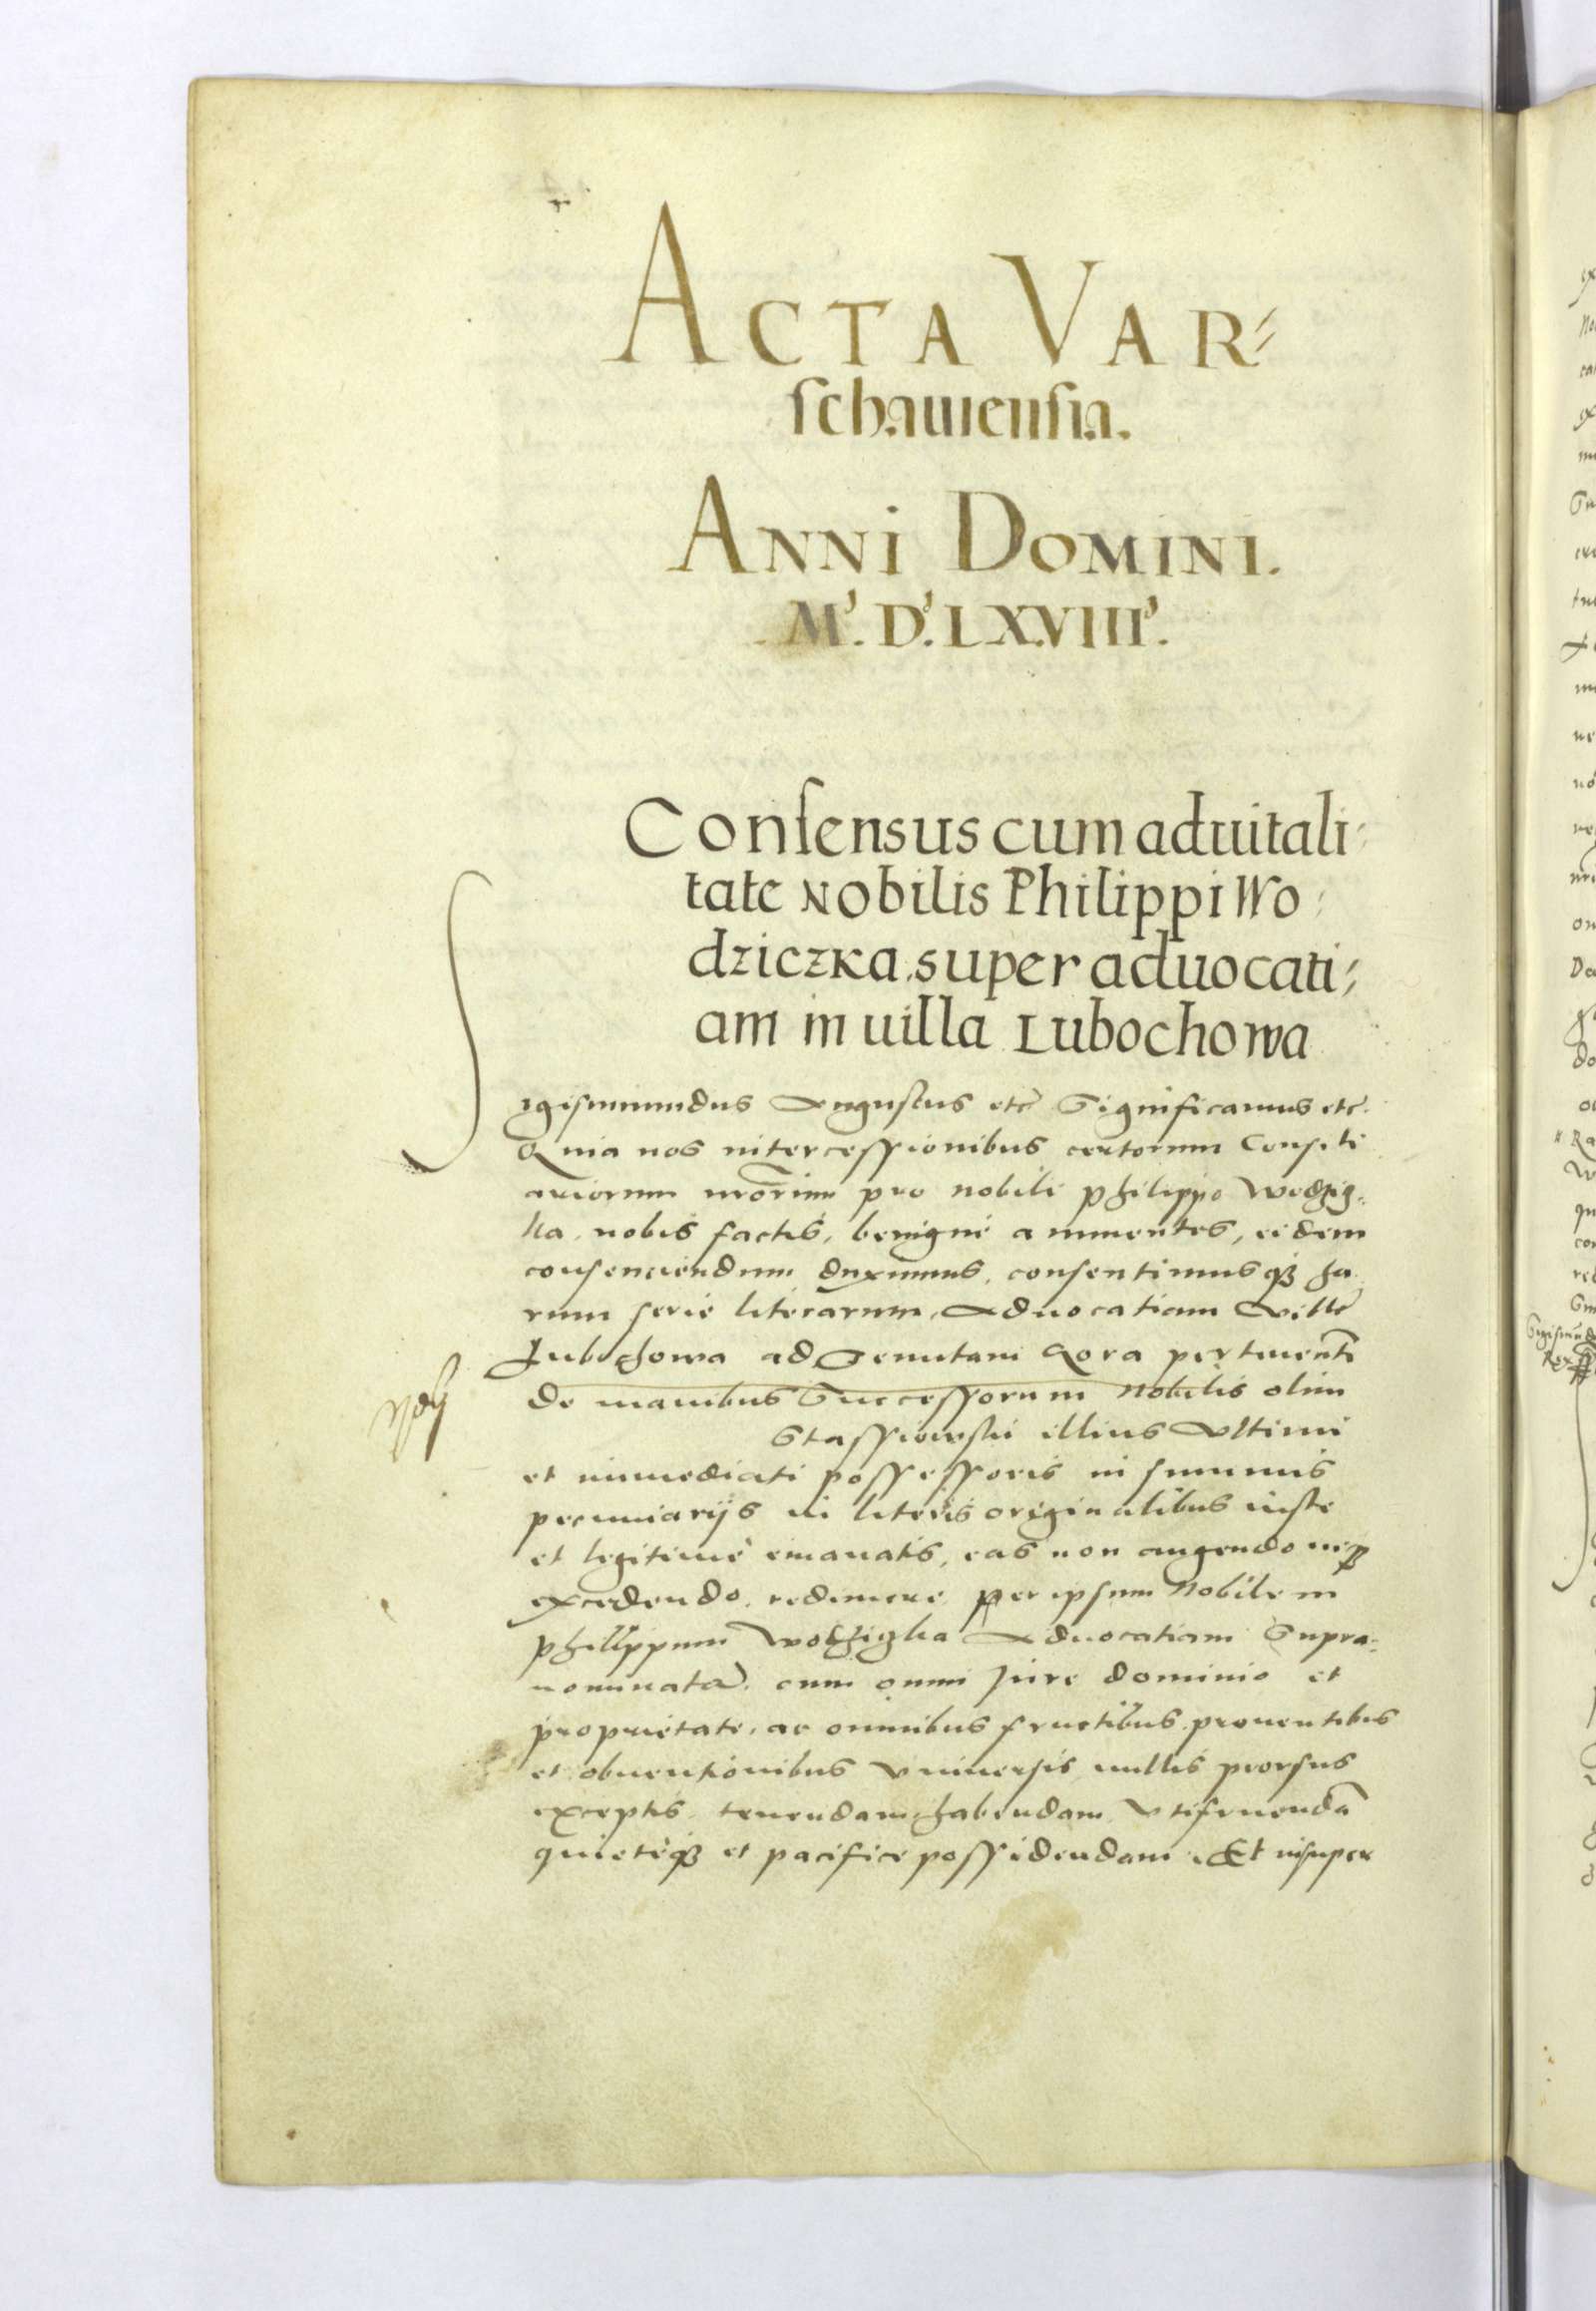 ACTA VAR=
schauiensia.
ANNI DOMINI.
M. D. LXVIII.
Consensus cum aduitali=
tate Nobilis Philippi Wo=
dziczka super aduocati=
am in uilla Lubochowa
Sigismundus Augustus etc Significamus etc.
Quia nos intercessionibus certorum Consili
ariorum nrorum pro nobili Philippo Wodzig=
ka, nobis factis, benigne annuentes, eidem
consenciendum duximus, consentimusq3 ha
rum serie literarum, Aduocatiam Ville
Lubochowa ad Tenutam Gora pertinentē
de manibus Successorum Nobilis olim
Stassiowskii illius Vltimi
et immediati possessoris in summis
pecuniarijs in literis originalibus iuste
et legitimè emanatis, eas non augendo neq3
excedendo, redimere per ipsum Nobilem
Philippum Wodzigka Aduocatiam Supra=
nominatā, cum omni Jure dominio et
proprietate, ac omnibus fructibus prouentibus
et obuentionibus Vniuersis nullis prorsus
exceptis tenendam habendam Vtifruendā
quietèq3 et pacifice possidendam. Et insuper